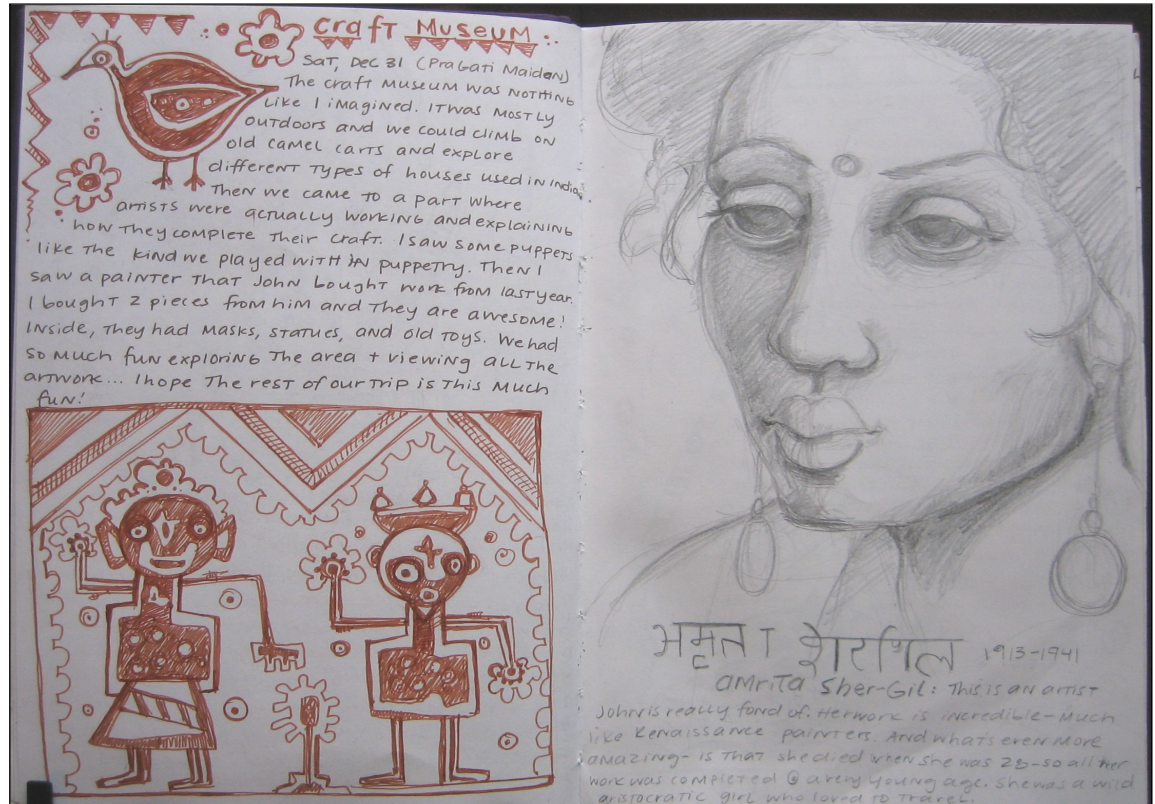 Craft Museum
Sat, Dec 31 (Pragati Maidan)
The craft museum was nothing
like I imagined. It was mostly
outdoors and we could climb on
old camel carts and explore
different types of houses used in India.
Then we came to a part where
artists were actually working and explaining
how they complete their craft. I saw some puppets
like the kind we played with in puppetry. Then I
saw a painter that John bought work from last year.
I bought 2 pieces from him and they are awesome!
Inside, they had masks, statues, and old toys. We had
so much fun exploring the area + viewing all the
artwork... I hope the rest of our trip is this much
fun!
1913-1941
Amrita Sher-Gil: This is an artist
John is really fond of. Her work is incredible - much
like Renaissance painters. And whats even more
amazing - is that she died when she was 28 - so all her
work was completed @ a very young age. She was a wild
aristocratic girl who loved to travel.